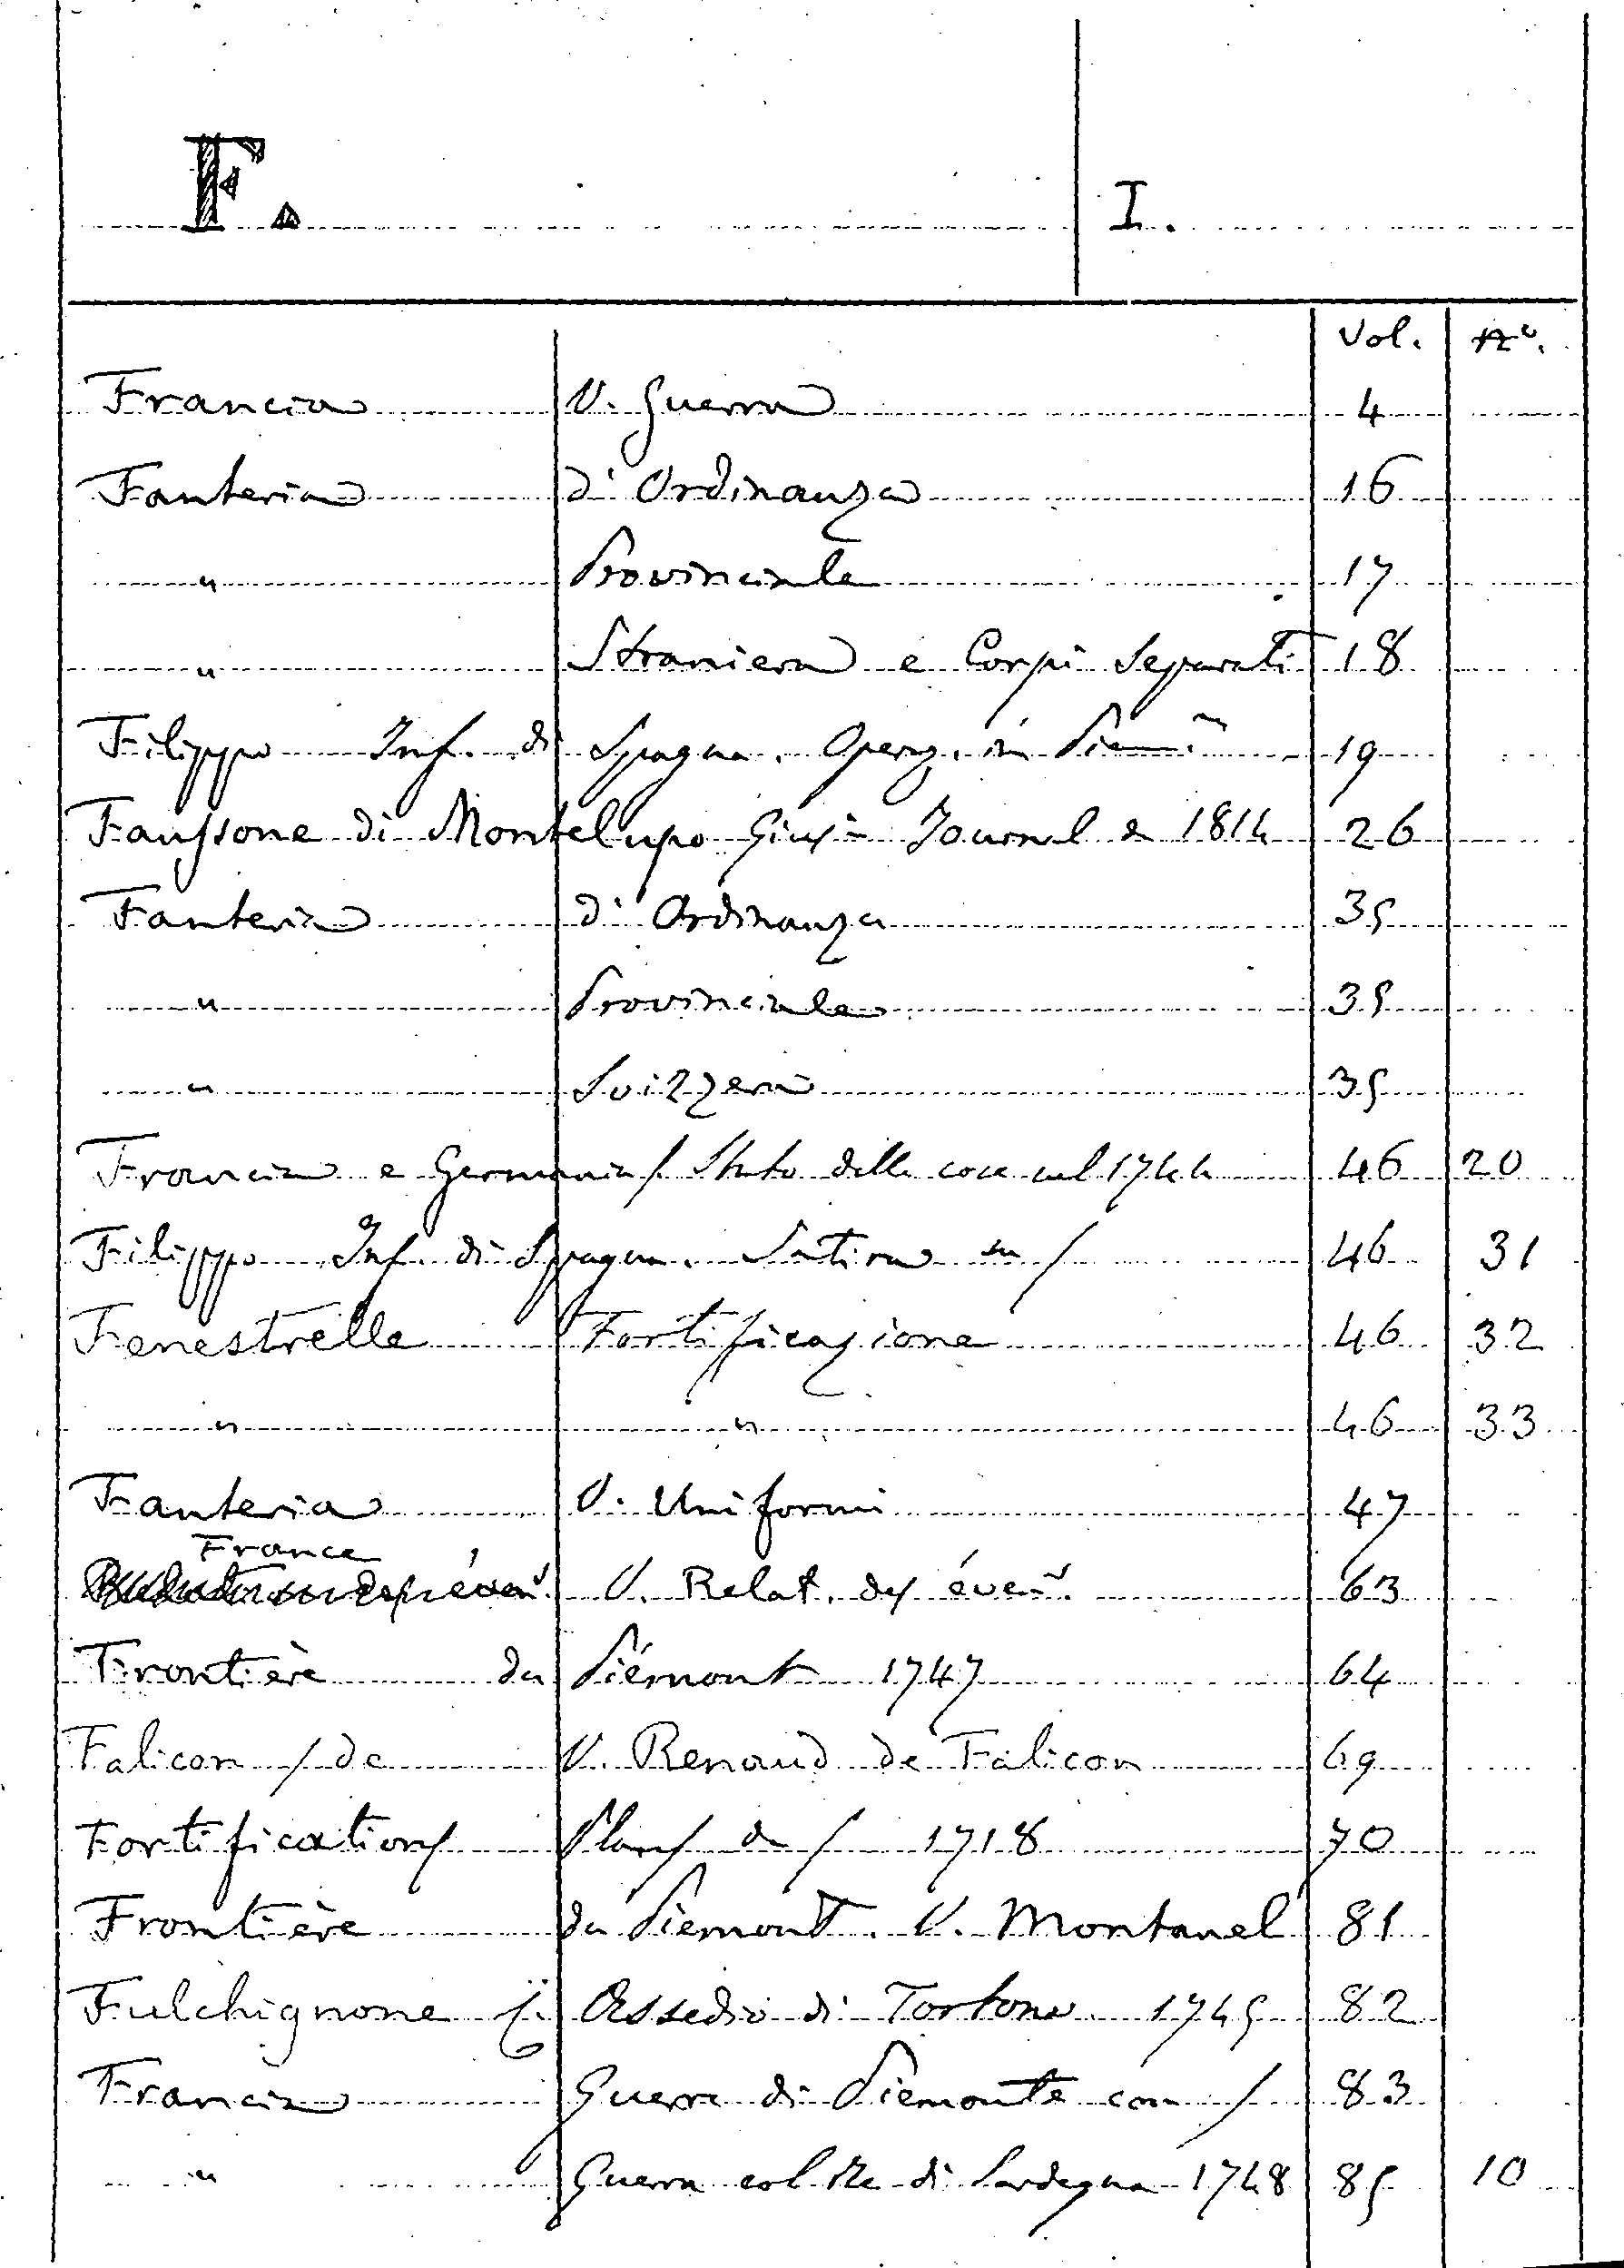 F. I.
Vol. No.
Francia V. Guerra 4
Fanteria d'Ordinanza 16
" Provinciale 17
" Straniera e Corpi Separati 18
Filippo Inf. di Spagna. Operaz. in Piem. 19
Faussone di Montelupo Gius. Journal de 1814 26
Fanteria d'Ordinanza 35
" Provinciale 35
" Svizzera 35
Francia e Germania / Stato delle cose nel 1744 46 20
Filippo Inf. di Spagna. Satira su / 46 31
Fenestrelle Fortificazione 46 32
" " 46 33
Fanteria V. Uniformi 47
France
V. Relat. des évents. 63
Frontière du Piémont 1747 64
Falicon / de V. Renaud de Falicon 69
Fortifications Plans de / 1718 70
Frontière du Piemont. V. Montanel 81
Fulchignone Assedio di Tortona 1745 82
Francia Guerra di Piemonte con / 83
" Guerra col Re di Sardegna 1748 85 10